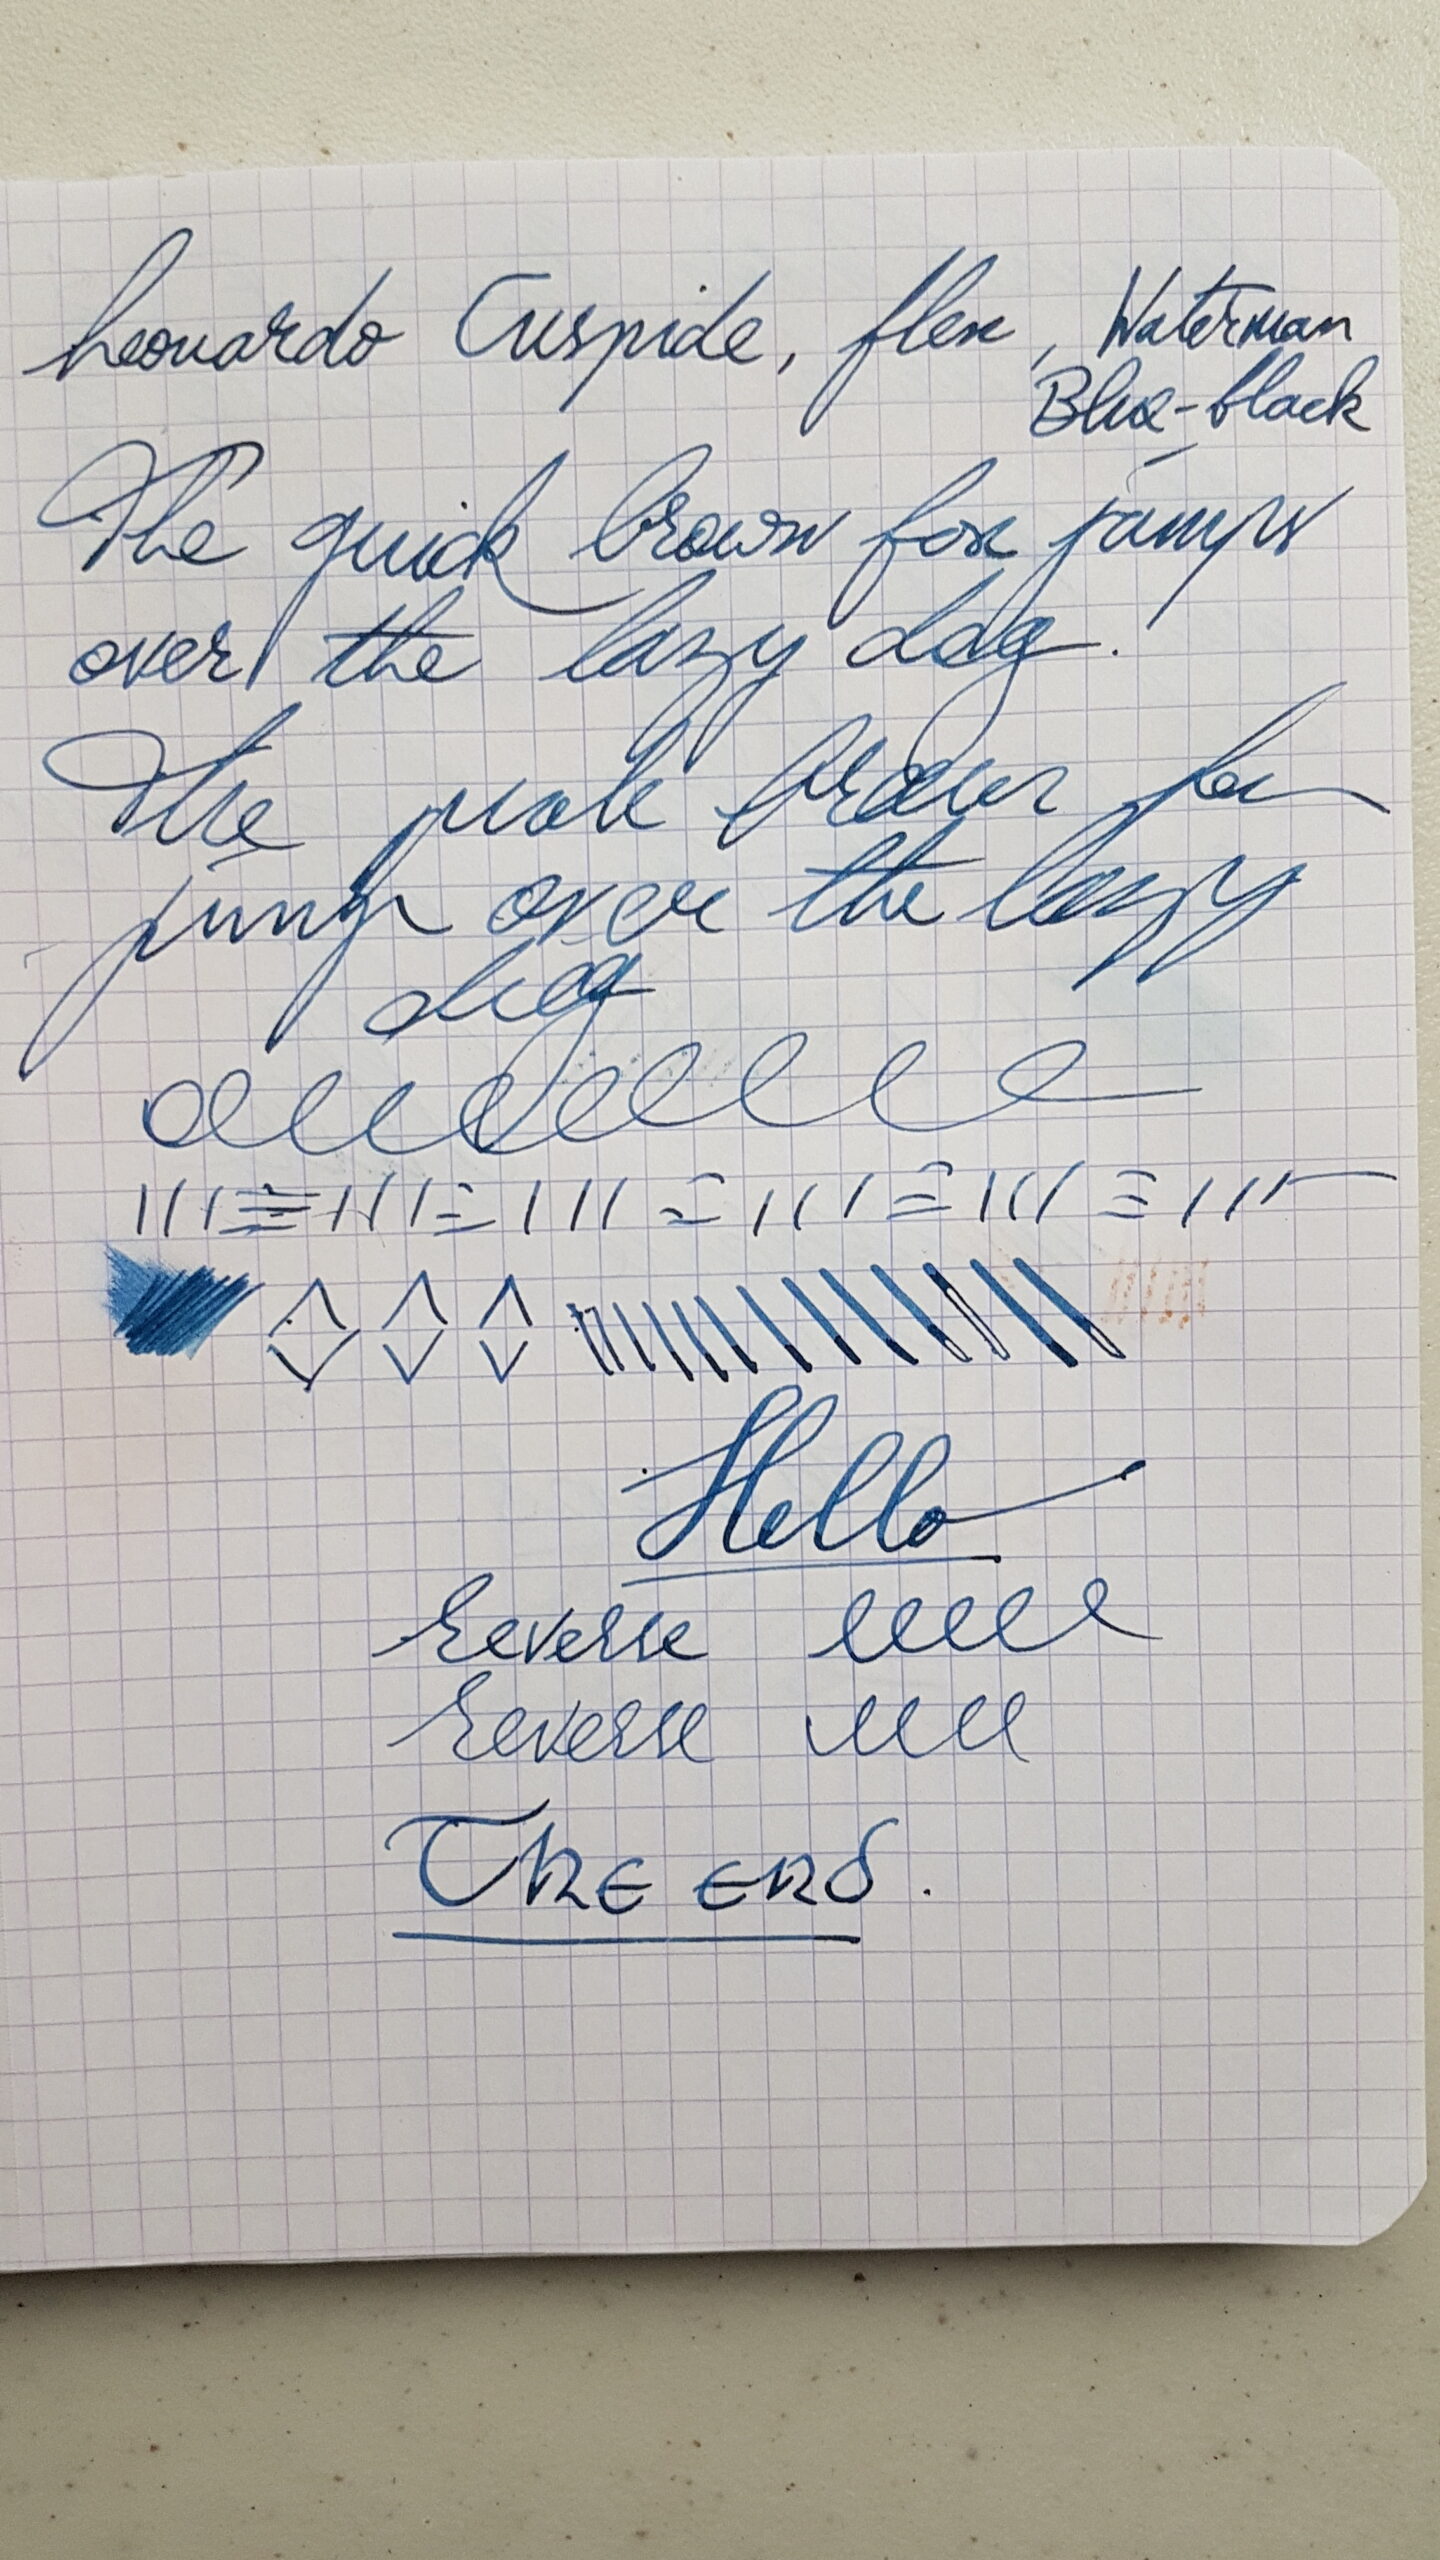 Leonardo Cuspide, flex, Waterman
Blue-black
The quick brown fox jumps
over the lazy dog.
The quick brown fox
jumps over the lazy
dog
Hello
Reverse
Reverse
The end.